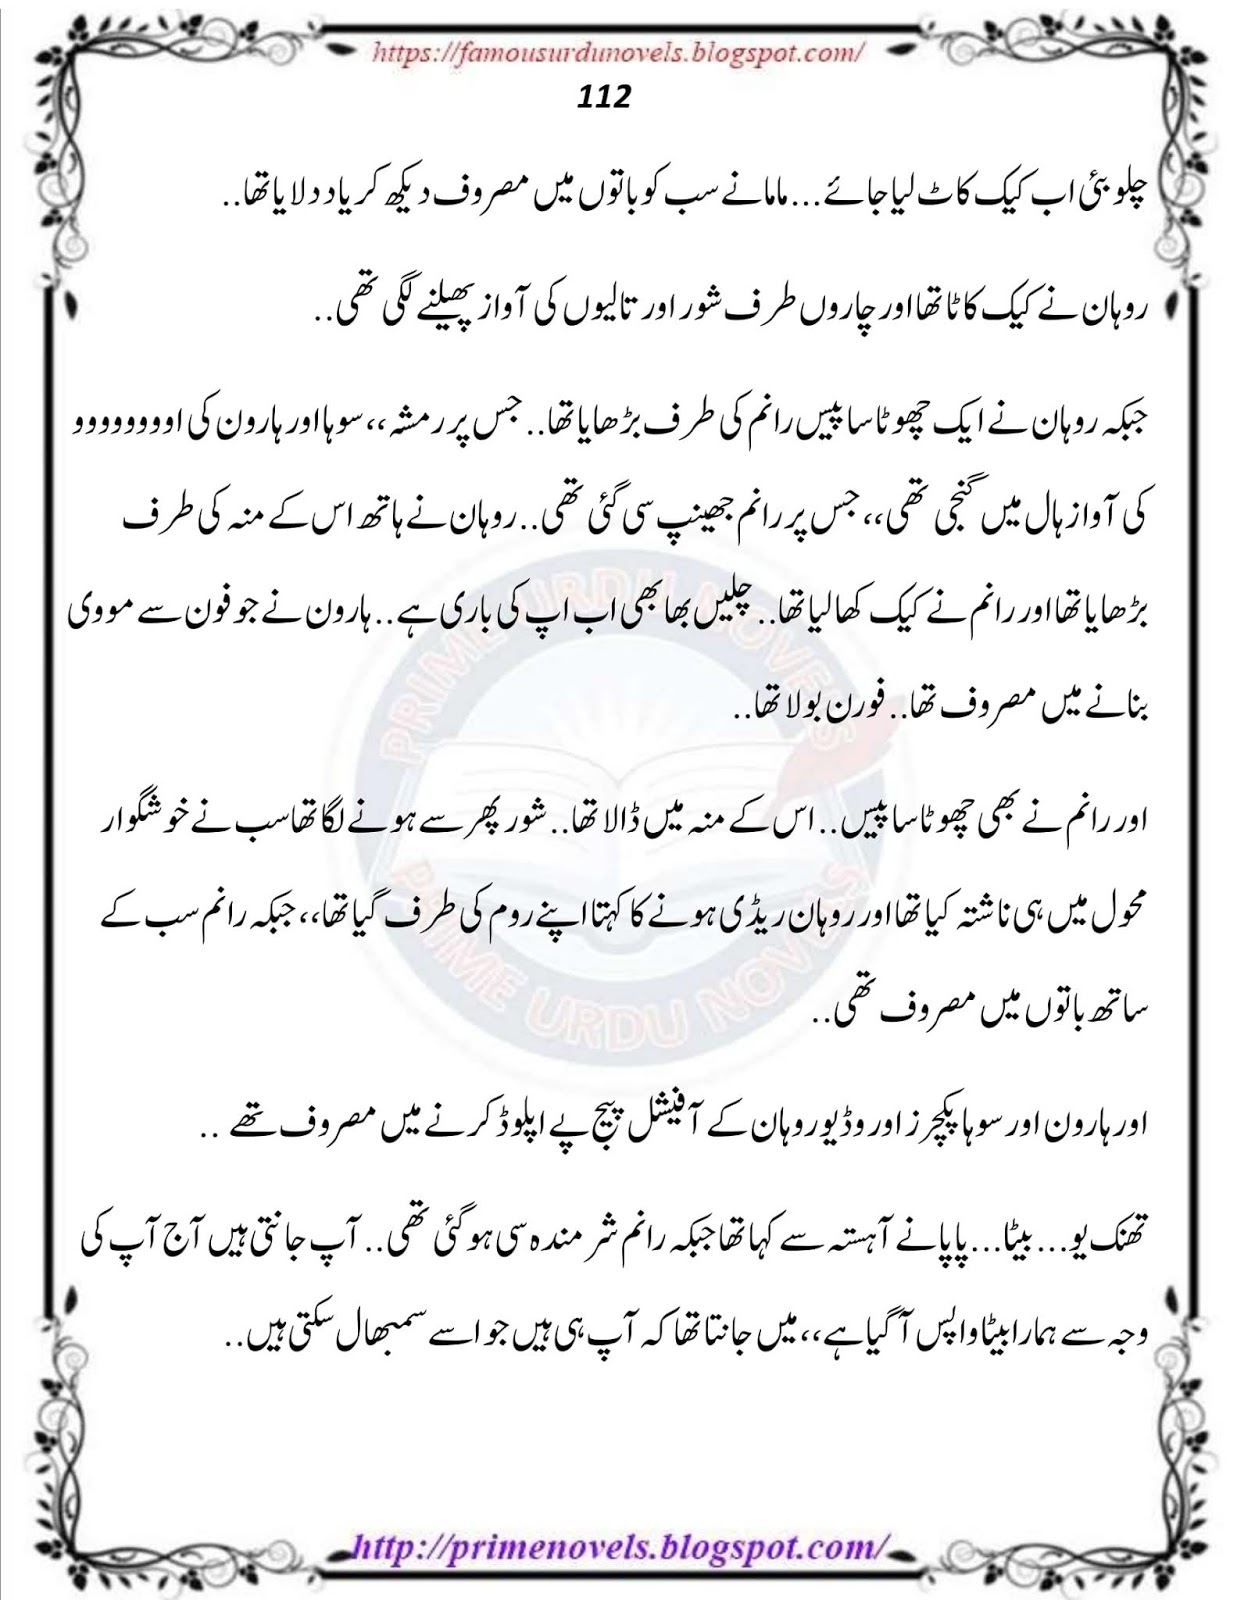 https://famousurdunovels.blogspot.com/
112
چلو بئی اب کیک کاٹ لیا جائے... ماما نے سب کو باتوں میں مصروف دیکھ کر یاد دلایا تھا..
روہان نے کیک کاٹا تھا اور چاروں طرف شور اور تالیوں کی آواز پھیلنے لگی تھی..
جبکہ روہان نے ایک چھوٹا سا پیس رانم کی طرف بڑھایا تھا.. جس پر رمشہ،، سوہا اور ہارون کی اوووووووو
کی آواز ہال میں گنجی تھی،، جس پر رانم جھینپ سی گئی تھی.. روہان نے ہاتھ اس کے منہ کی طرف
بڑھایا تھا اور رانم نے کیک کھا لیا تھا.. چلیں بھابھی اب اپ کی باری ہے.. ہارون نے جو فون سے مووی
بنانے میں مصروف تھا.. فورن بولا تھا..
اور رانم نے بھی چھوٹا سا پیس.. اس کے منہ میں ڈالا تھا.. شور پھر سے ہونے لگا تھا سب نے خوشگوار
محول میں ہی ناشتہ کیا تھا اور روہان ریڈی ہونے کا کہتا اپنے روم کی طرف گیا تھا،، جبکہ رانم سب کے
ساتھ باتوں میں مصروف تھی..
اور ہارون اور سوہا پکچرز اور وڈیو روہان کے آفیشل پیج پے اپلوڈ کرنے میں مصروف تھے ..
تھنک یو... بیٹا... پاپا نے آہستہ سے کہا تھا جبکہ رانم شرمندہ سی ہو گئی تھی.. آپ جانتی ہیں آج آپ کی
وجہ سے ہمارا بیٹا واپس آگیا ہے،، میں جانتا تھا کہ آپ ہی ہیں جو اسے سمبھال سکتی ہیں..
PRIME URDU NOVELS
PRIME URDU NOVELS
http://primenovels.blogspot.com/